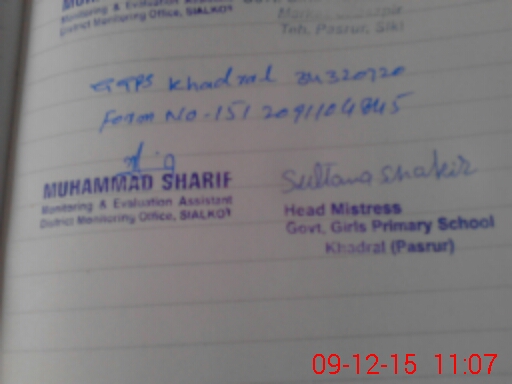 Monitoring & Evaluation Assistant
District Monitoring Office, SIALKOT
Teh. Pasrur, Slkt
GGPS Khadral 34320720
Form NO-151 2091104845
MUHAMMAD SHARIF
Monitoring & Evaluation Assistant
District Monitoring Office, SIALKOT
Sultana Shakir
Head Mistress
Govt. Girls Primary School
Khadral (Pasrur)
09-12-15 11:07